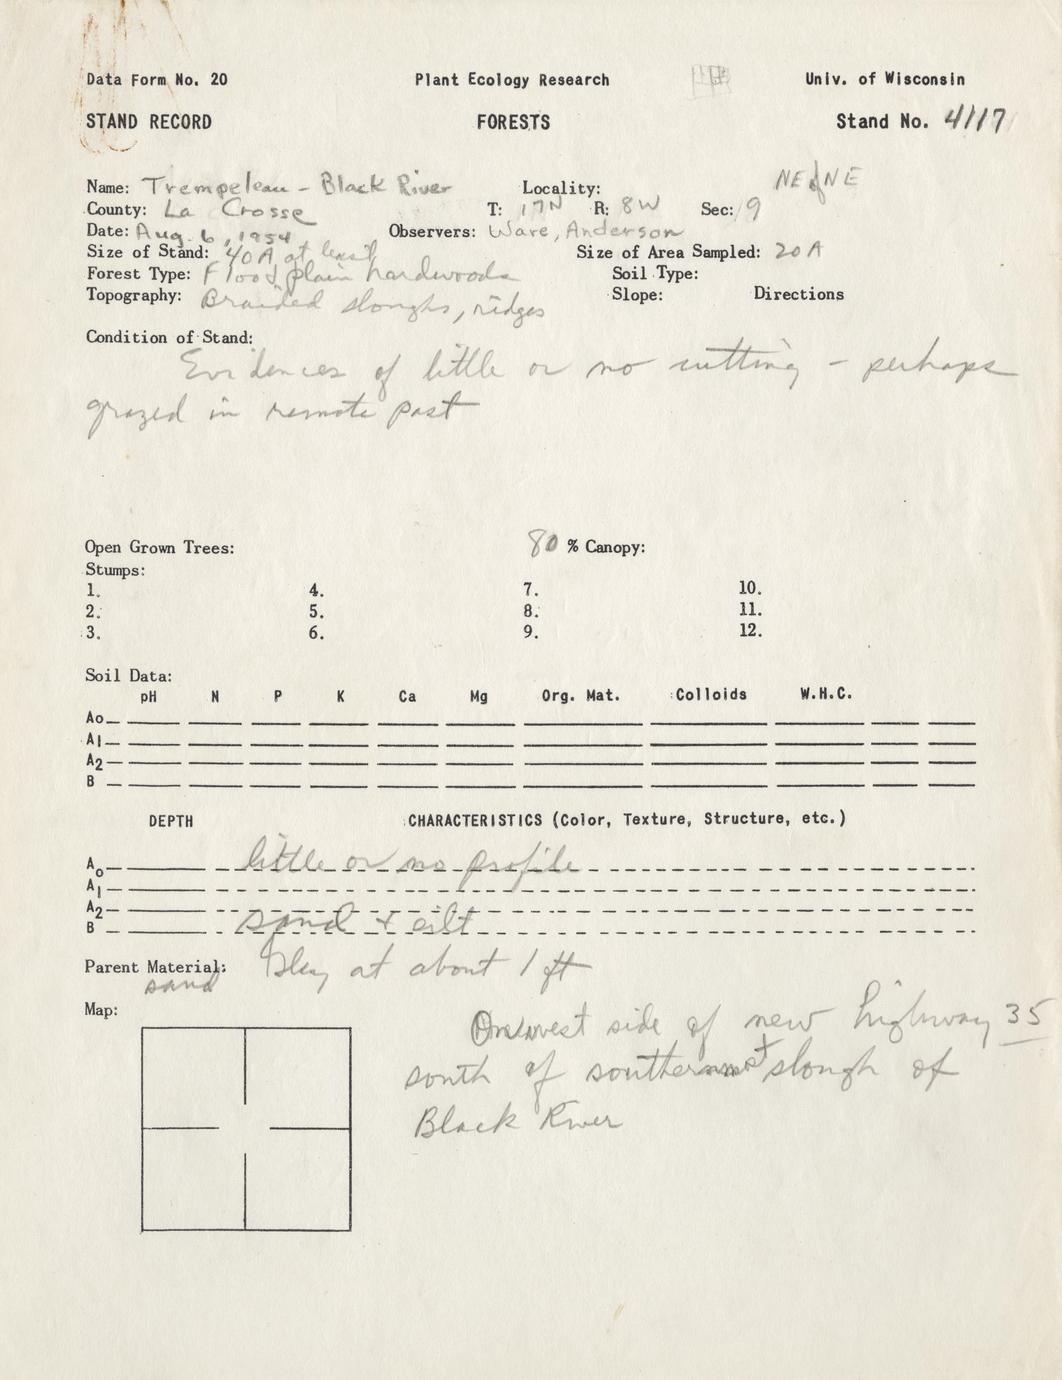 Data Form No. 20 Plant Ecology Research Univ. of Wisconsin
STAND RECORD FORESTS Stand No. 4117
Name: Trempeleau - Black River Locality: NE of NE
County: La Crosse T: 17N R: 8W Sec: 9
Date: Aug. 6, 1954 Observers: Ware, Anderson
Size of Stand: 40 A at least Size of Area Sampled: 20 A
Forest Type: Flood plain hardwoods Soil Type:
Topography: Braided sloughs, ridges Slope: Directions
Condition of Stand:
Evidences of little or no cutting - perhaps
grazed in remote past
Open Grown Trees: 80 % Canopy:
Stumps:
1. 4. 7. 10.
2. 5. 8. 11.
3. 6. 9. 12.
Soil Data:
pH N P K Ca Mg Org. Mat. Colloids W.H.C.
Ao
A1
A2
B
DEPTH CHARACTERISTICS (Color, Texture, Structure, etc.)
Ao little or no profile
A1
A2
B sand + silt
Parent Material: Gley at about 1 ft
sand
Map:
On west side of new highway 35
south of southernmost slough of
Black River